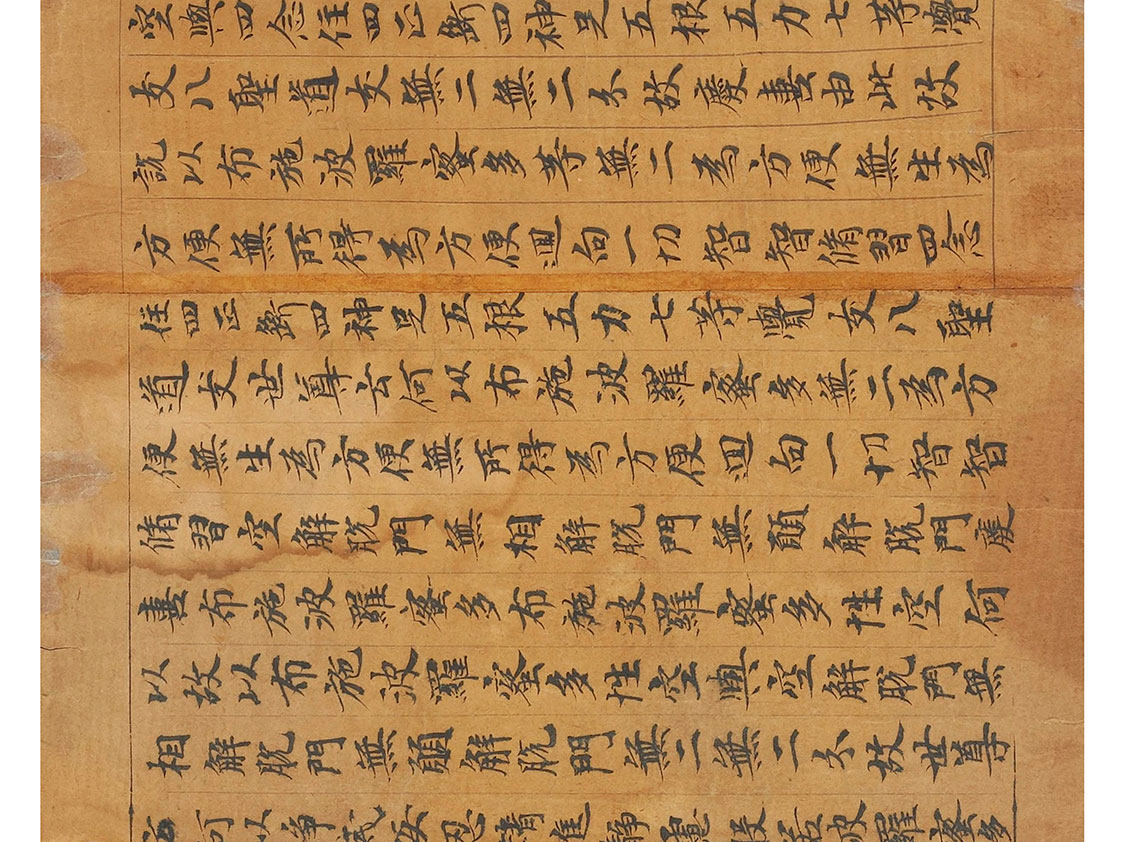 空與四念住四正斷四神足五根五力七等覺
支八聖道支無二無二分故慶喜由此故
說以布施波羅蜜多等無二為方便無生為
方便無所得為方便迴向一切智智脩習四念
住四正斷四神足五根五力七等覺支八聖
道支世尊云何以布施波羅蜜多無二為方
便無生為方便無所得為方便迴向一切智智
脩習空解脫門無相解脫門無願解脫門慶
喜布施波羅蜜多布施波羅蜜多性空何
以故以布施波羅蜜多性空與空解脫門無
相解脫門無願解脫門無二無二分故世尊
何以淨戒安忍精進靜慮般若波羅蜜多